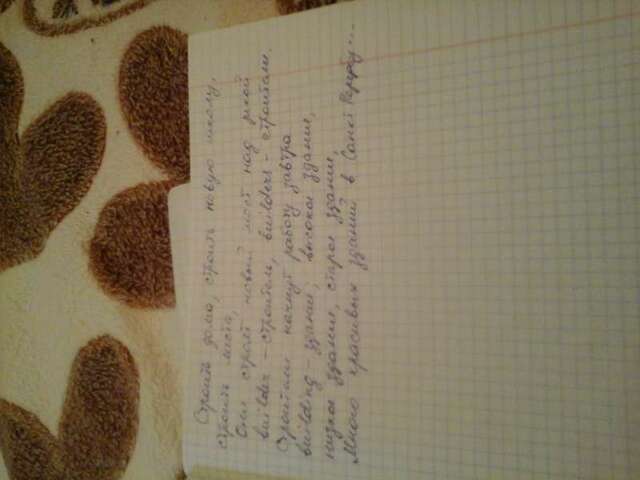 Строить дома, строить новую школу,
строить места,
Они строят новый мост над рекой
builder - строитель, builders - строители.
Строители начнут работу завтра
building - здание, высокое здание,
низкое здание, старое здание,
Много красивых зданий в Санкт